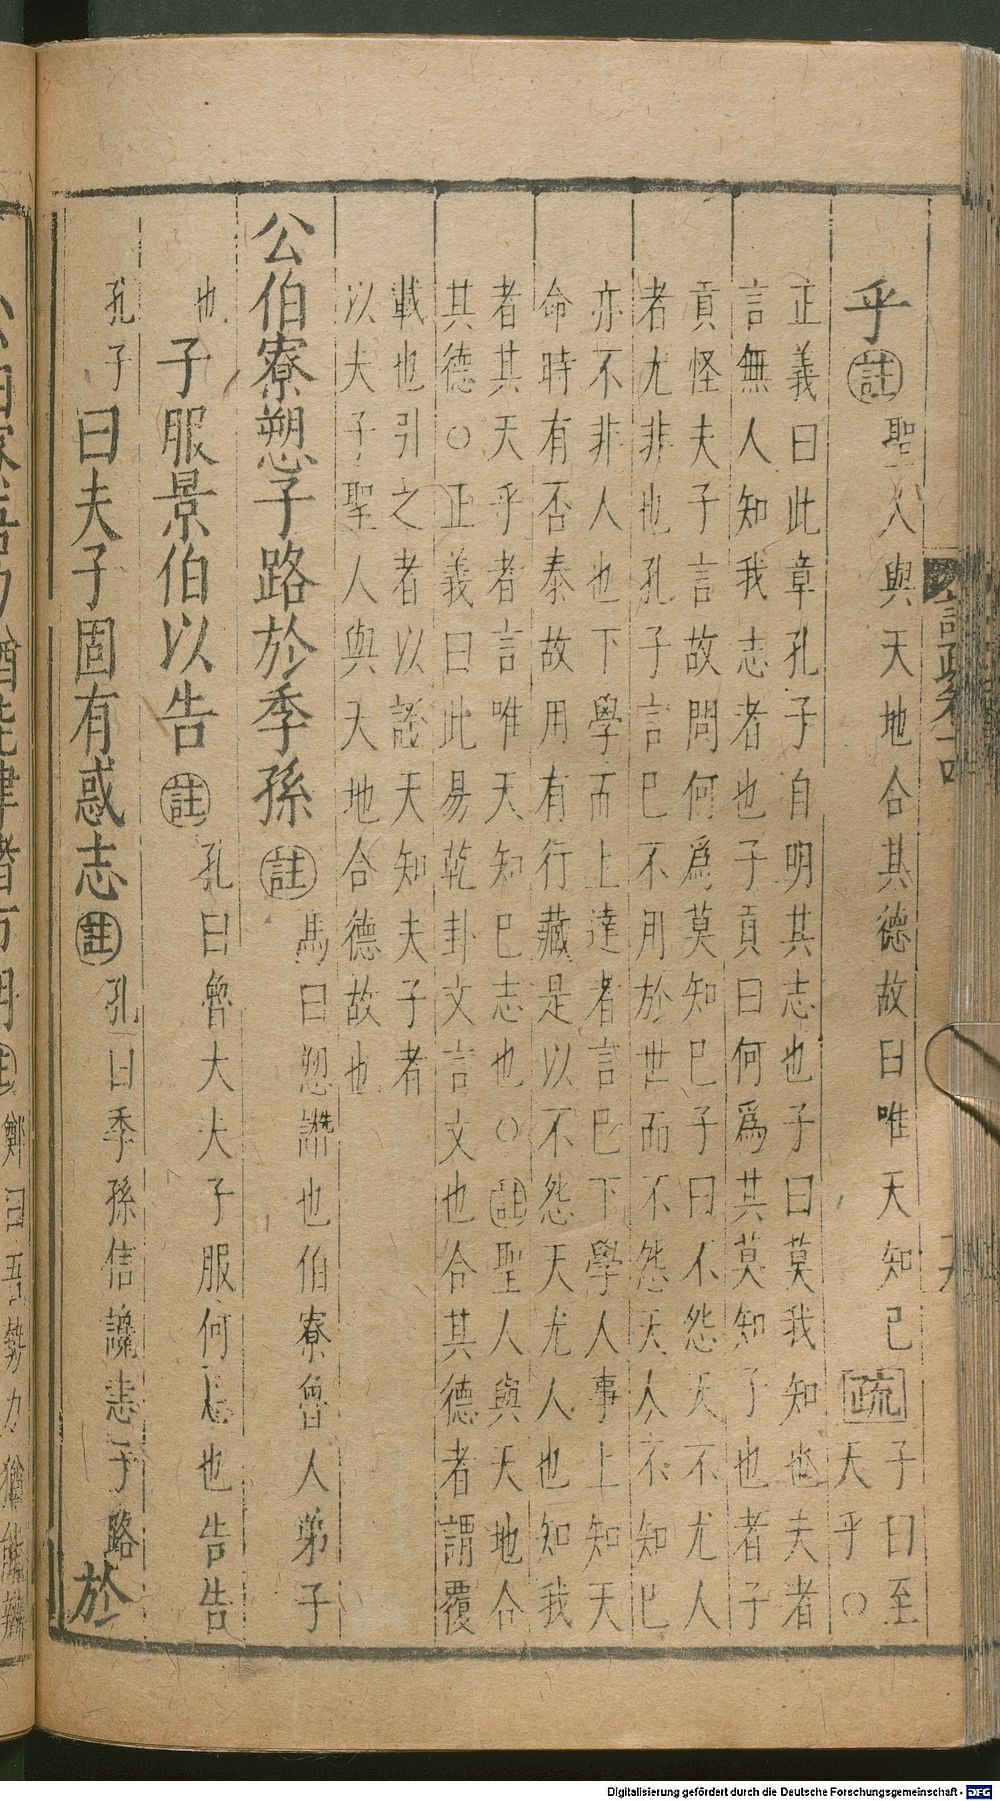 註疏卷十四
乎註聖人與天地合其德故曰唯天知己疏子曰至天乎○
正義曰此章孔子自明其志也子曰莫我知也夫者
言無人知我志者也子貢曰何爲其莫知子也者子
貢怪夫子言故問何爲莫知己子曰不怨天不尤人
者尤非也孔子言己不用於世而不怨天人不知己
亦不非人也下學而上達者言己下學人事上知天
命時有否泰故用有行藏是以不怨天尤人也知我
者其天乎者言唯天知己志也○註聖人與天地合
其德○正義曰此易乾卦文言文也合其德者謂覆
載也引之者以證天知夫子者
以夫子聖人與天地合德故也
公伯寮愬子路於季孫註馬曰愬譖也伯寮魯人弟子
也子服景伯以告註孔曰魯大夫子服何忌也告告
孔子曰夫子固有惑志註孔曰季孫信讒恚子路於
力猶能肆諸市朝註鄭曰吾勢力猶能辨
Digitalisierung gefördert durch die Deutsche Forschungsgemeinschaft - DFG